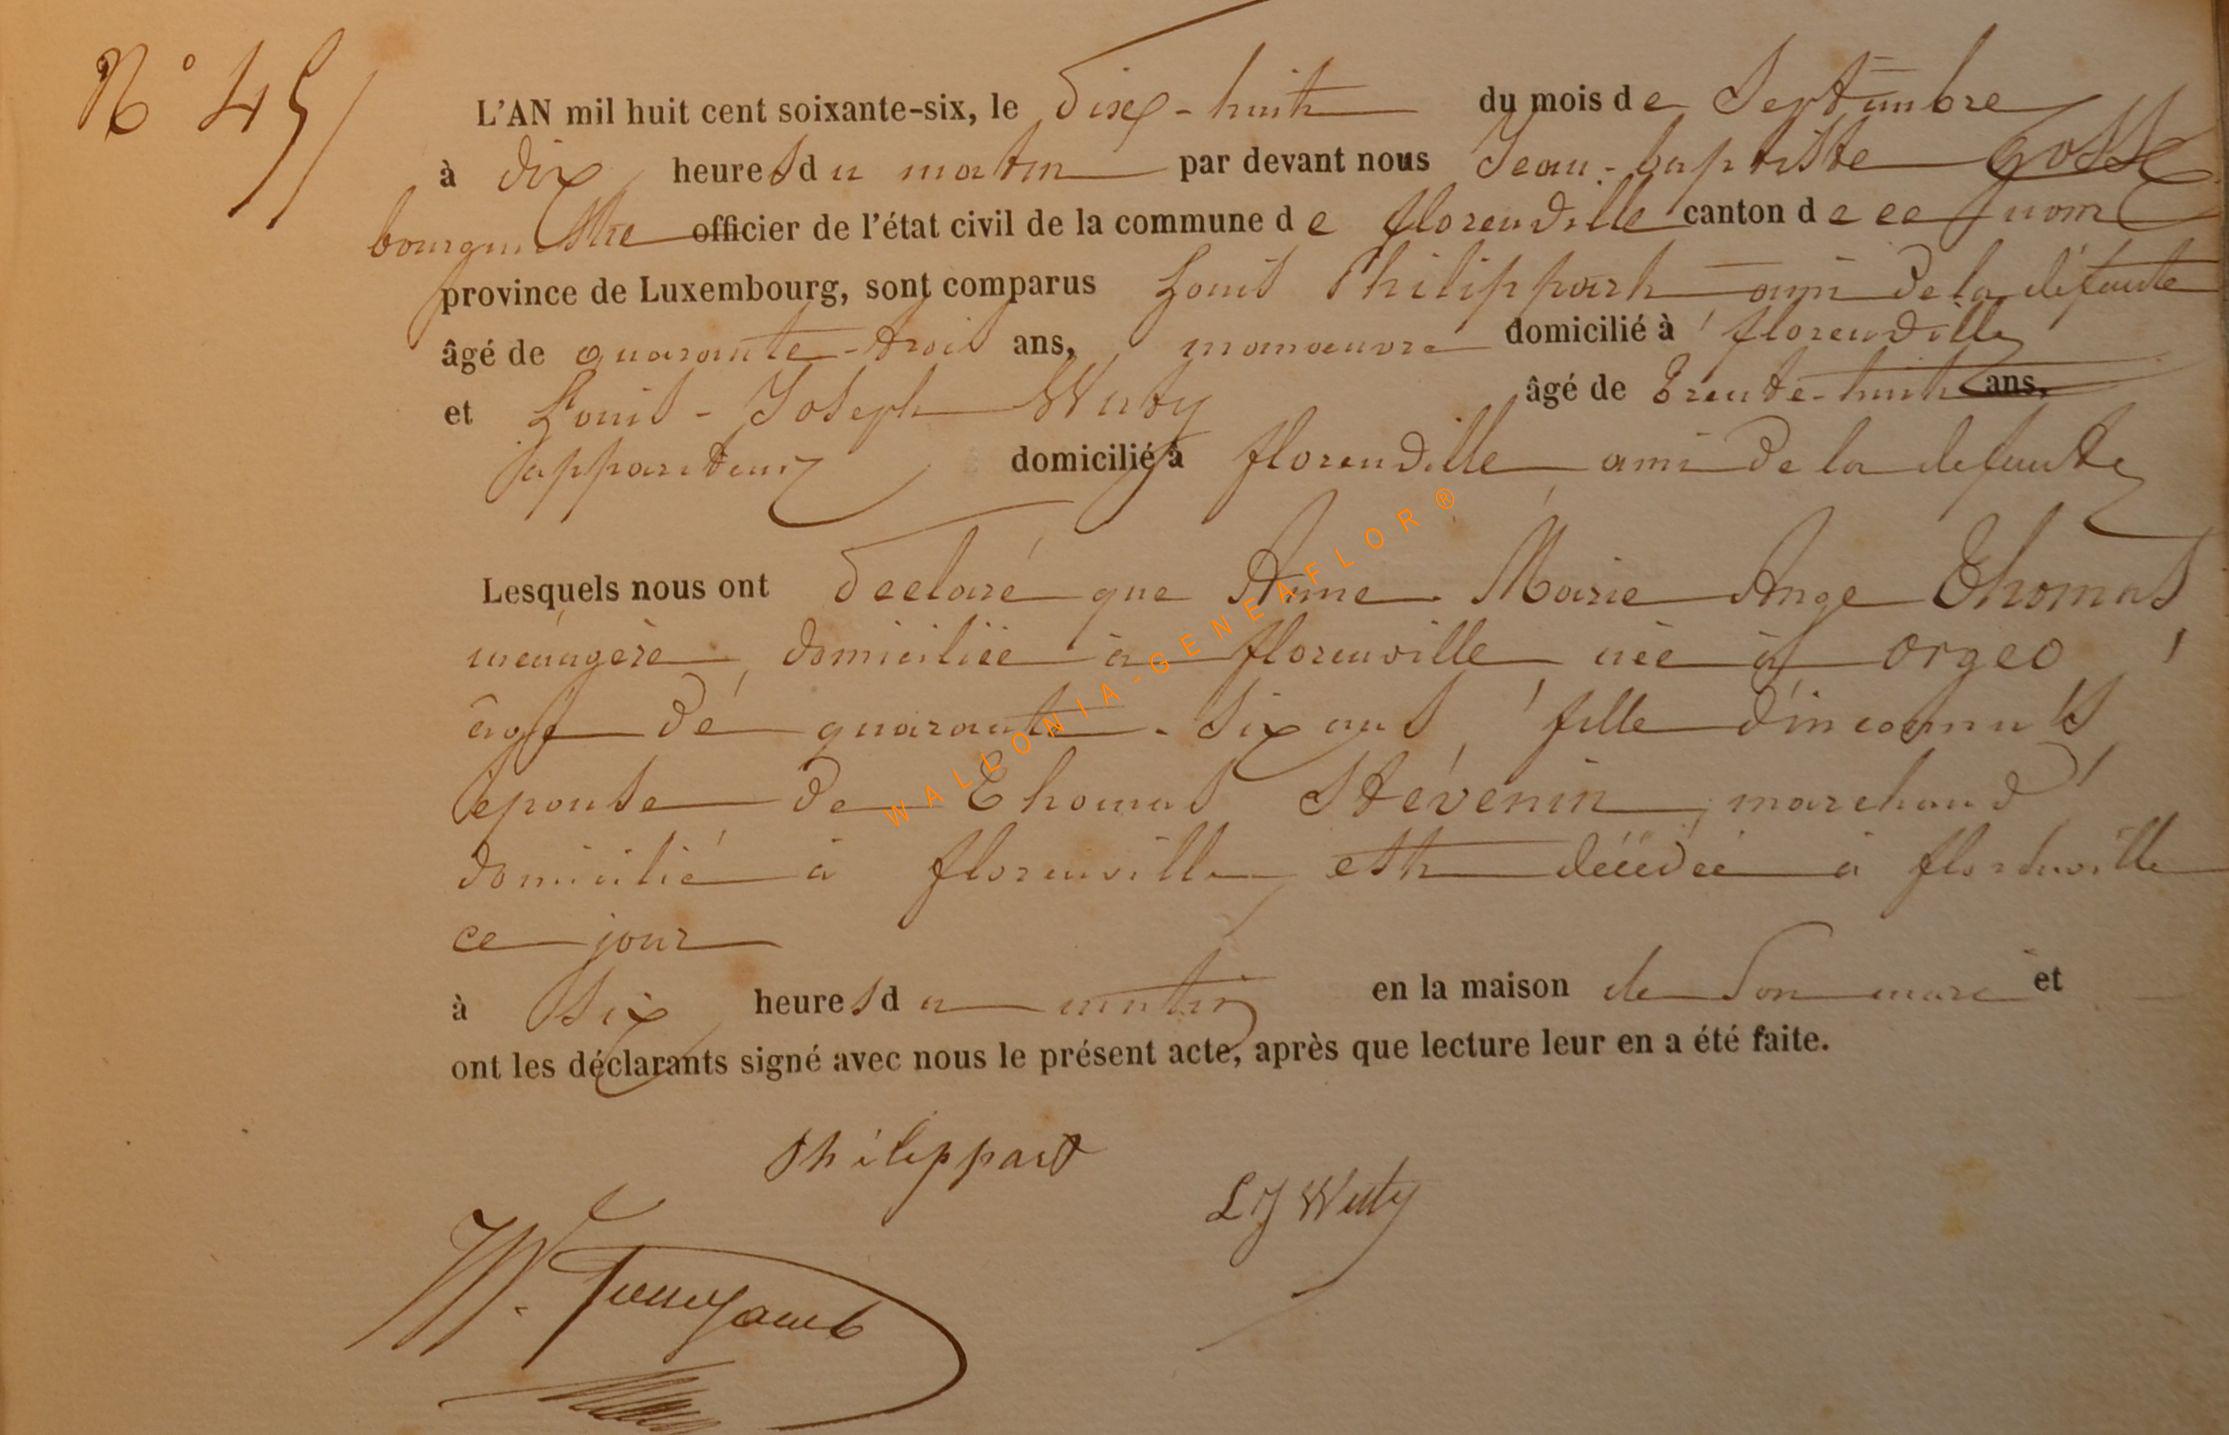 N° 45
L'AN mil huit cent soixante-six, le dix-huit du mois de Septembre
à dix heures du matin par devant nous Jean-baptiste
bourgmestre officier de l'état civil de la commune de florenville canton de ce nom
province de Luxembourg, sont comparus Louis Philippart ami de la défunte
âgé de quarante-trois ans, manoeuvre domicilié à florenville
et Louis-Joseph Wuty âgé de trente-huit ans,
appariteur domicilié à florenville ami de la defunte
Lesquels nous ont declaré que Anne Marie Ange Thomas
ménagère, domiciliée à florenville née à orgeo
âgé de quarante-six ans, fille d'inconnus
épouse de Thomas Stévenin, marchand
domicilié à florenville est décédée à florenville
ce jour
à six heures du matin en la maison de son mari et
ont les déclarants signé avec nous le présent acte, après que lecture leur en a été faite.
Philippart
LJ Wuty
WALLONIA-GENEAFLOR®